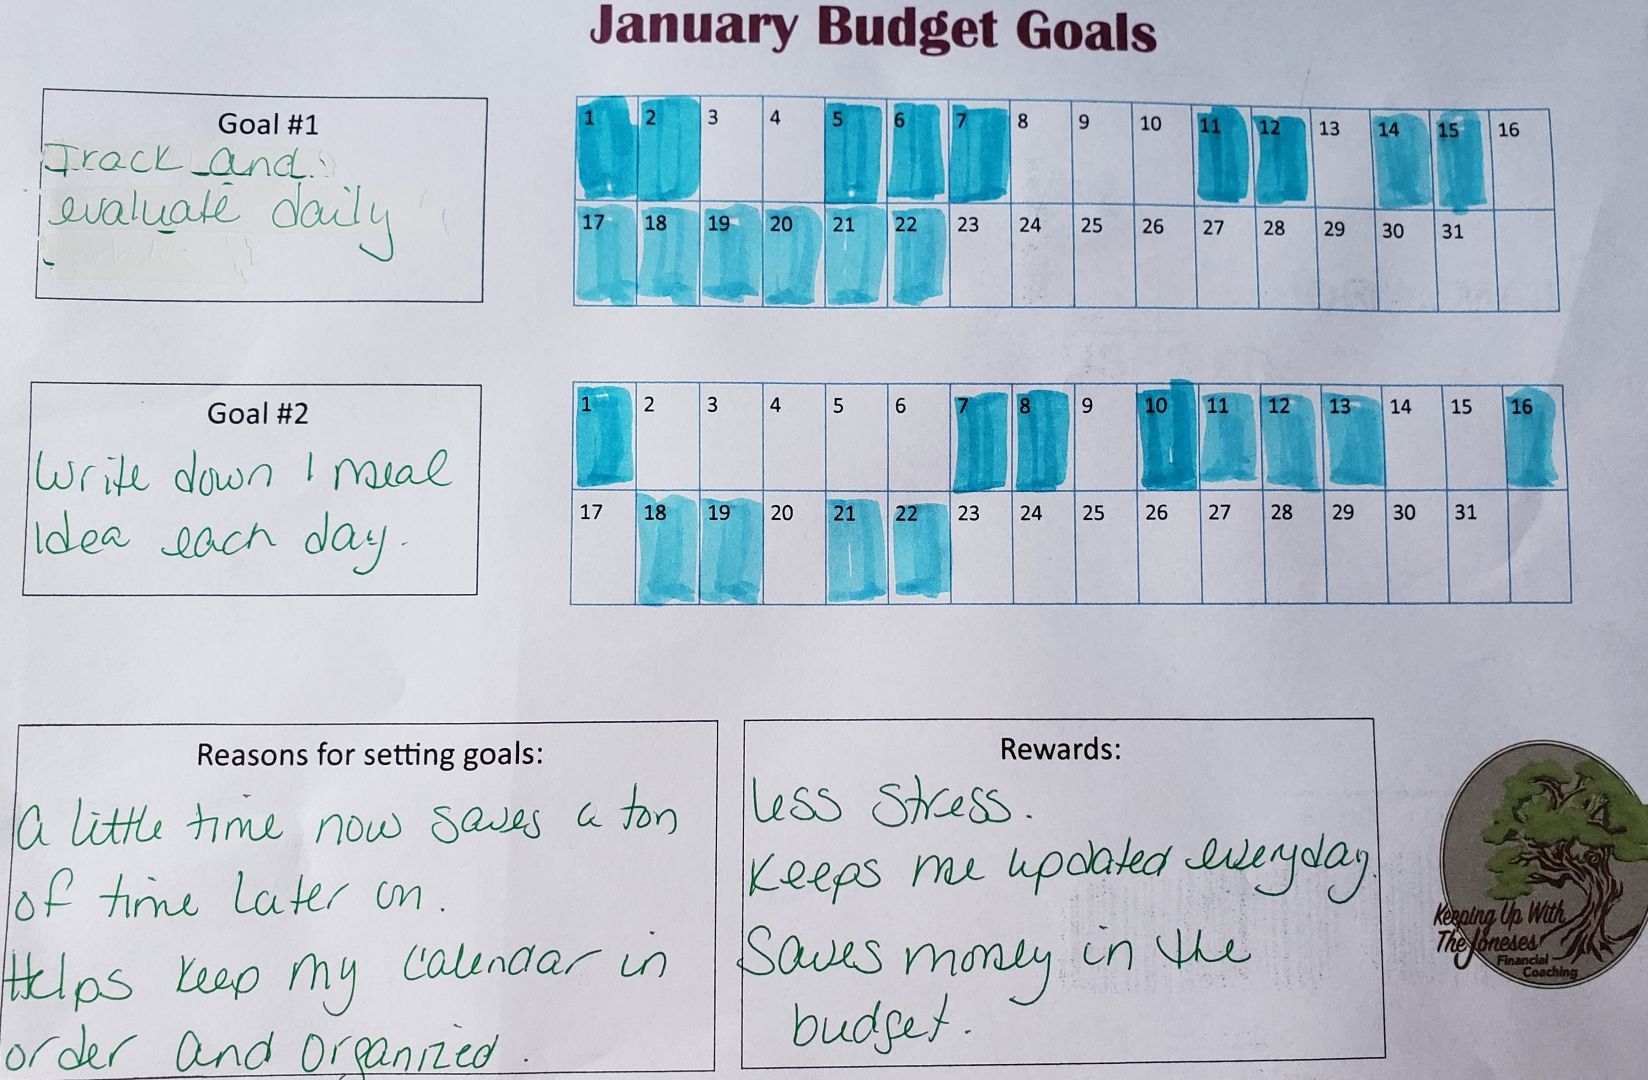 January Budget Goals
Goal #1
Track and
evaluate daily
1 2 3 4 5 6 7 8 9 10 11 12 13 14 15 16
17 18 19 20 21 22 23 24 25 26 27 28 29 30 31
Goal #2
Write down 1 meal
idea each day.
1 2 3 4 5 6 7 8 9 10 11 12 13 14 15 16
17 18 19 20 21 22 23 24 25 26 27 28 29 30 31
Reasons for setting goals:
A little time now saves a ton
of time later on.
Helps keep my calendar in
order and organized.
Rewards:
Less stress.
Keeps me updated everyday.
Saves money in the
budget.
Keeping Up With
The Joneses
Financial
Coaching